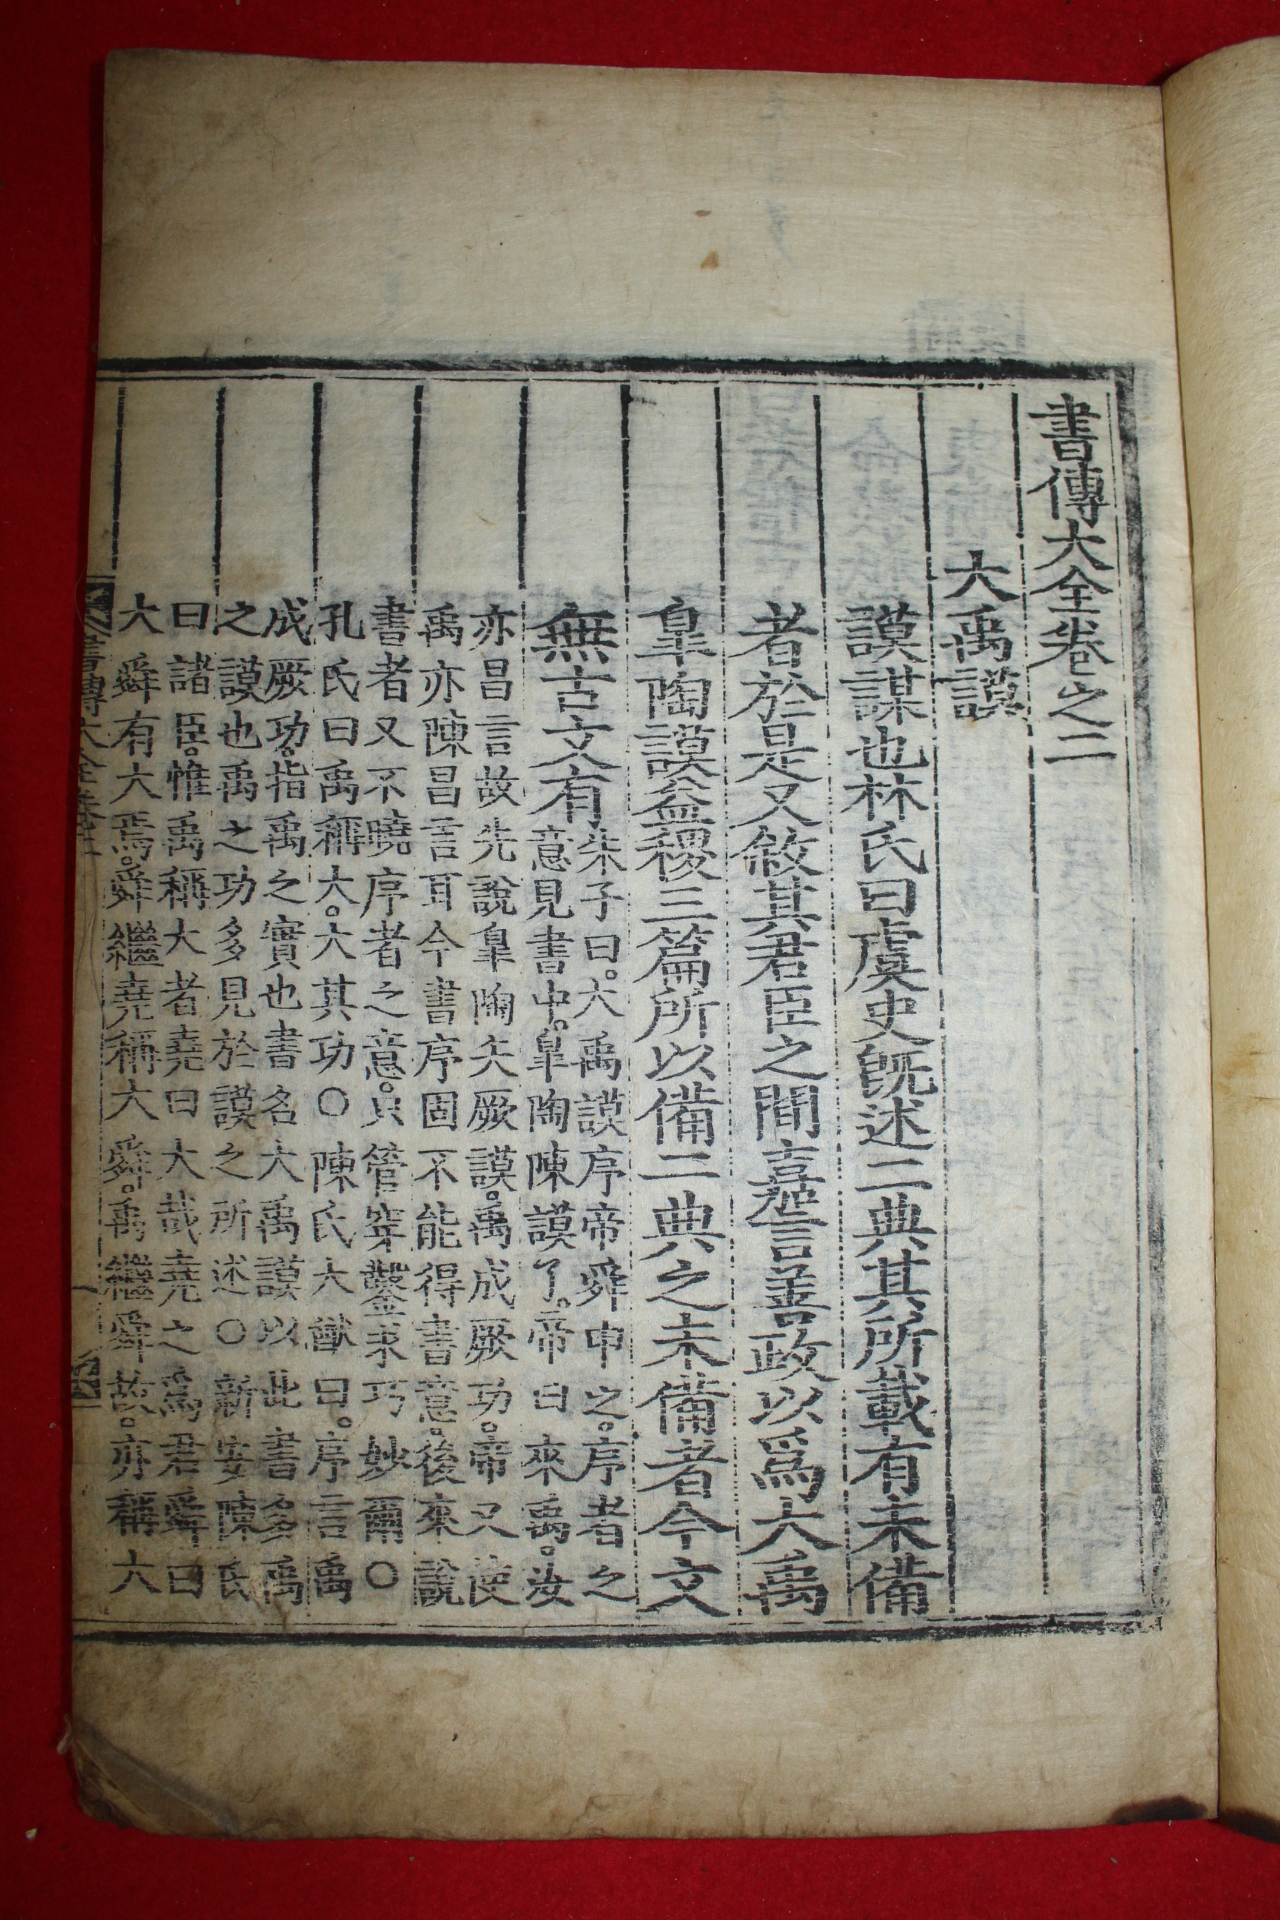 書傳大全卷之二
大禹謨
謨謀也林氏曰虞史旣述二典其所載有未備
者於是又敘其君臣之間嘉言善政以爲大禹
皐陶謨益稷三篇所以備二典之未備者今文
無古文有
朱子曰大禹謨序帝舜申之序者之
意見書中皐陶陳謨了帝曰來禹汝
亦昌言故先說皐陶矢厥謨禹成厥功帝又使
禹亦陳昌言耳今書序固不能得書意後來說
書者又不曉序者之意只管穿鑿求巧妙爾〇
孔氏曰禹稱大大其功〇陳氏大猷曰序言禹
成厥功指禹之實也書名大禹謨以此書多禹
之謨也禹之功多見於謨之所述〇新安陳氏
曰諸臣惟禹稱大者堯曰大哉堯之爲君舜曰
大舜有大焉舜繼堯稱大舜禹繼舜故亦稱大
書傳大全卷二
一